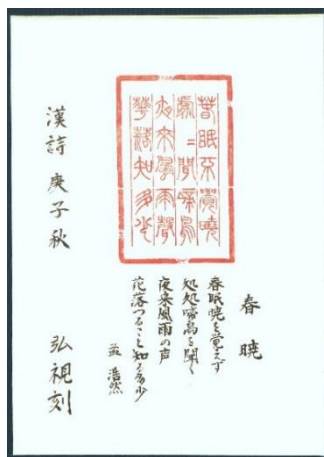 春眠不覺曉
處〻聞啼鳥
夜來風雨聲
華落知多少
春 暁
春眠暁を覚えず
処処啼鳥を聞く
夜来風雨の声
花落つること知る多少
孟 浩然
漢詩 庚子秋 弘視刻